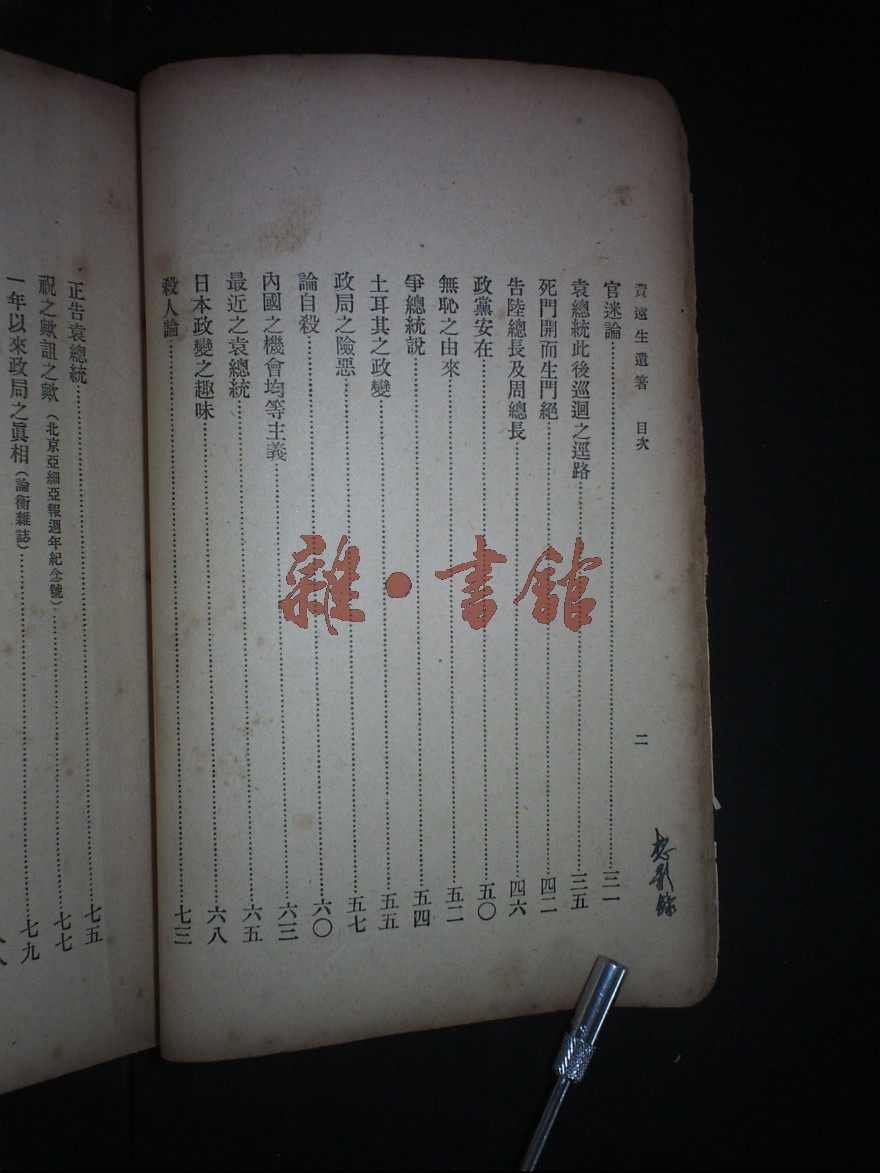 黃遠生遺著　目次　二
官迷論……三一
袁總統此後巡迴之逕路……三五
死門開而生門絕……四二
告陸總長及周總長……四六
政黨安在……五〇
無恥之由來……五二
爭總統說……五四
土耳其之政變……五五
政局之險惡……五七
論自殺……六〇
內國之機會均等主義……六三
最近之袁總統……六五
日本政變之趣味……六八
殺人論……七三
正告袁總統……七五
祝之歟詛之歟（北京亞細亞報週年紀念號）……七七
一年以來政局之眞相（論衡雜誌）……七九
雜·書館